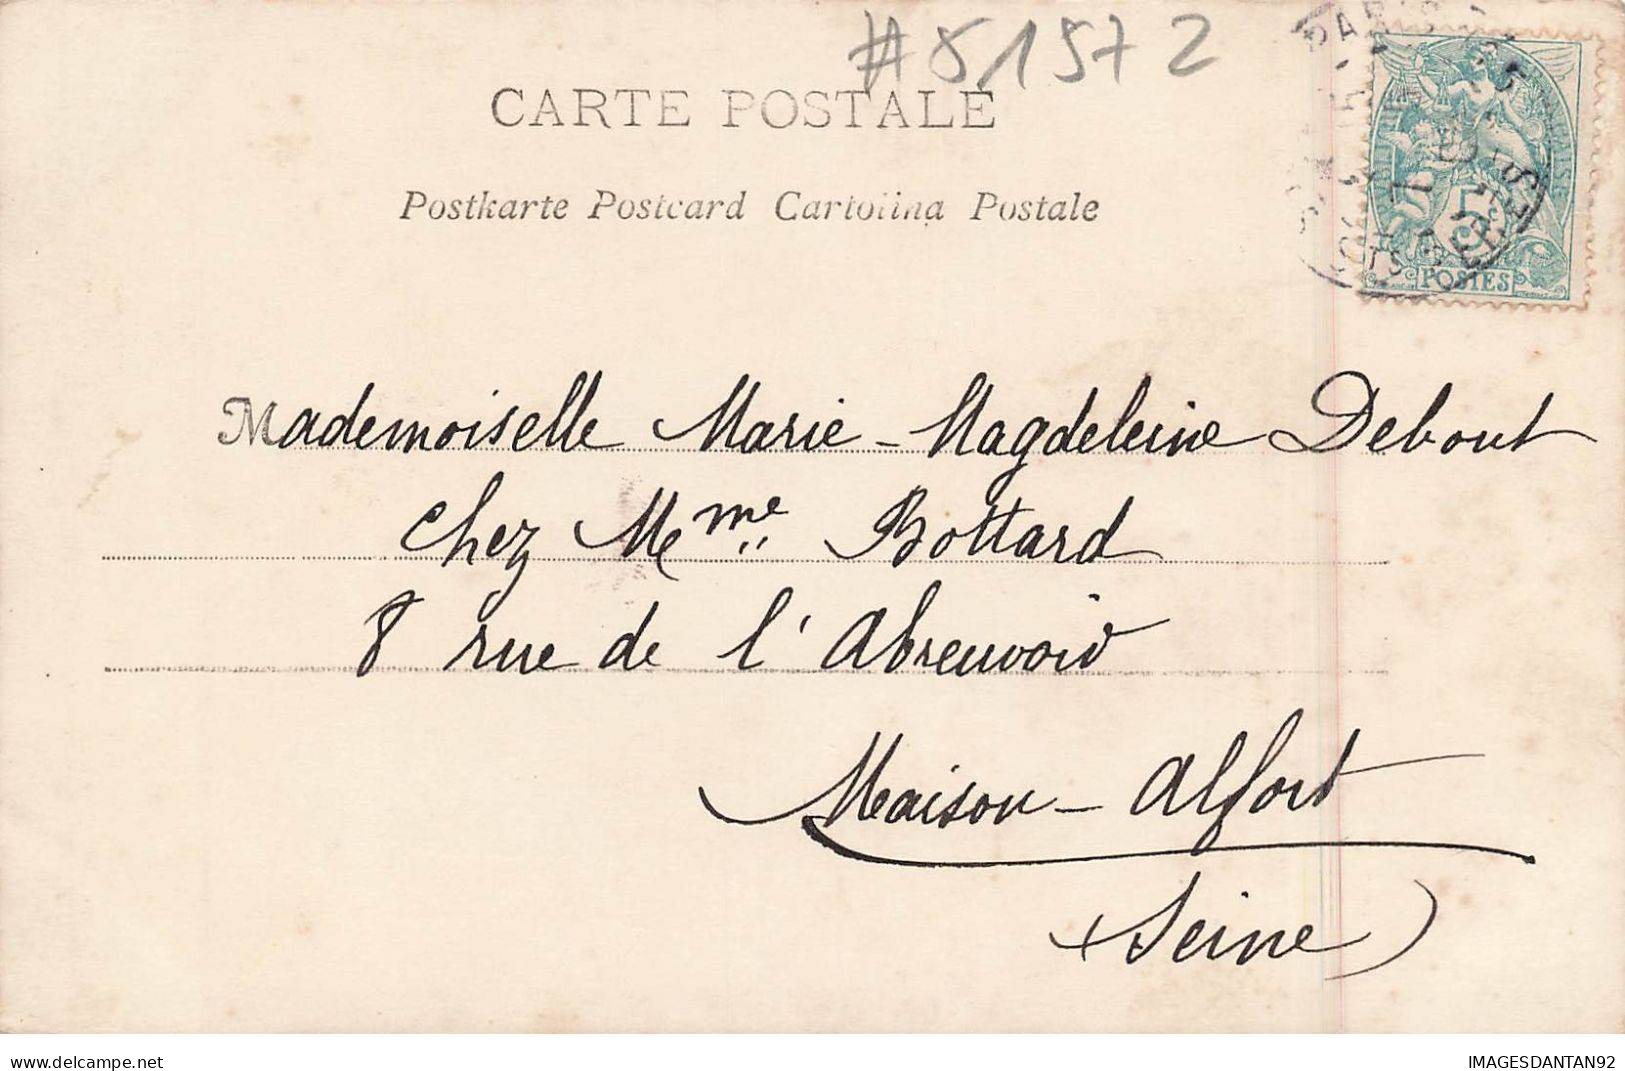 #51572
CARTE POSTALE
Postkarte Postcard Cartolina Postale
PARIS
5c
POSTES
Mademoiselle Marie-Magdeleine Debout
Chez Mme Bottard
8 rue de l'Abreuvoir
Maison-Alfort
(Seine)
www.delcampe.net
IMAGESDANTAN92